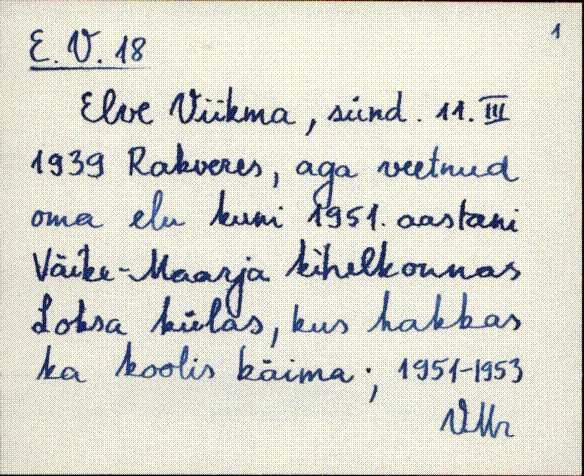 1
E. V. 18
Elve Viikma, sünd. 11. III
1939 Rakveres, aga veetnud
oma elu kuni 1951. aastani
Väike-Maarja kihelkonnas
Loksa külas, kus hakkas
ka koolis käima; 1951-1953